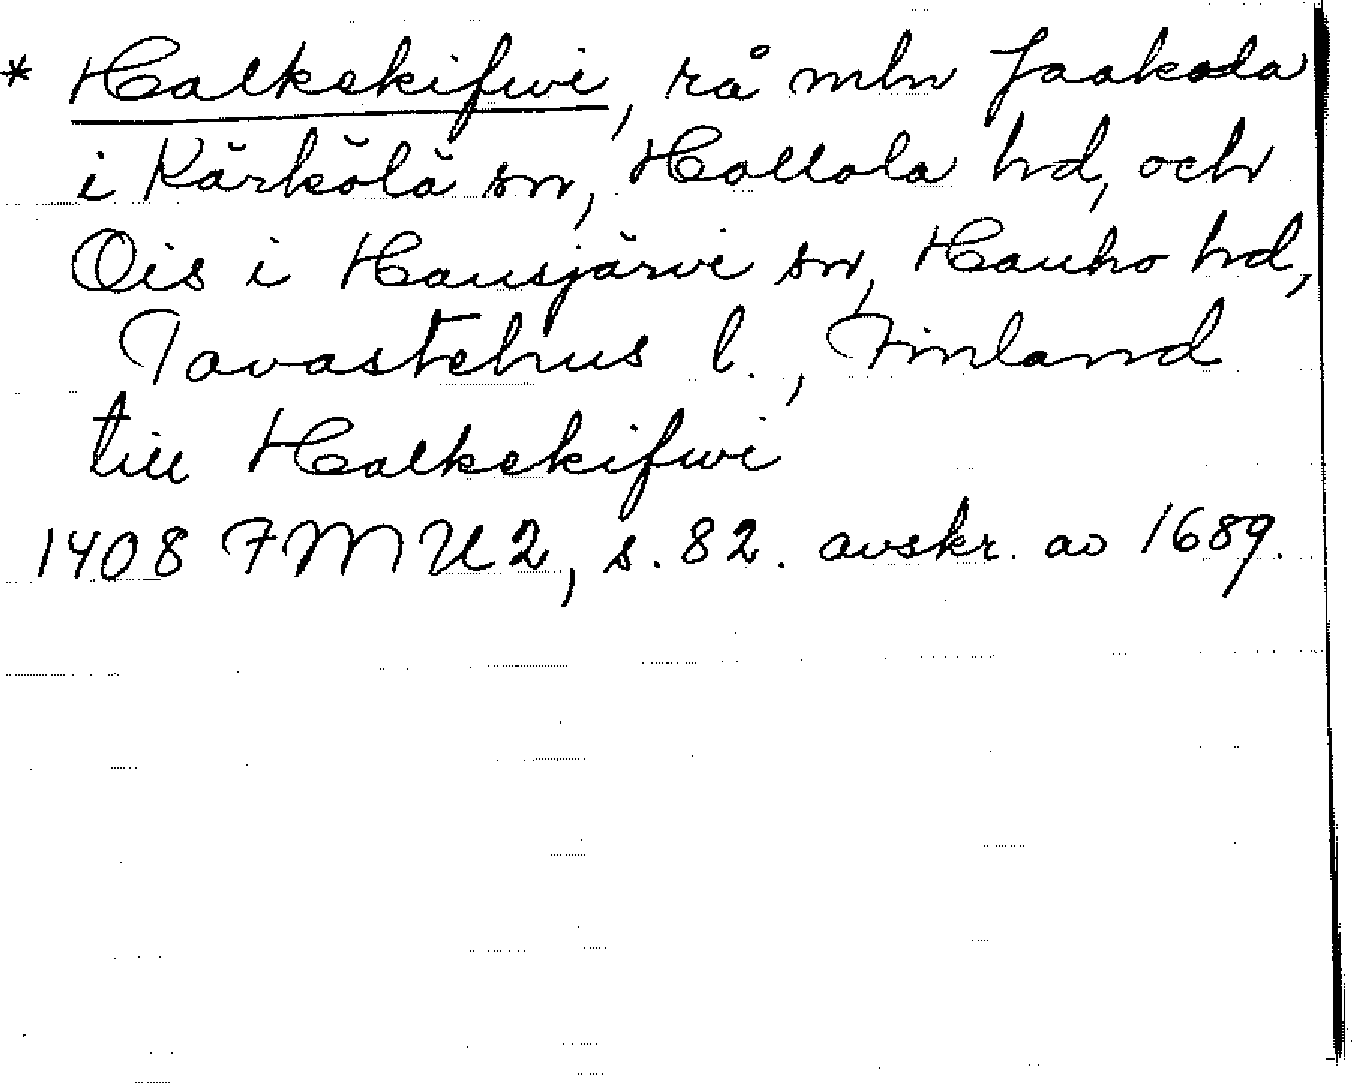 * Halkskifwi, rå mln Jaakola
i Kärkölä sn, Hollola hd, och
Ois i Hausjärvi sn, Hauho hd,
Tavastehus l., Finland
till Halkskifwi
1408 FMU2, s. 82. avskr. av 1689.